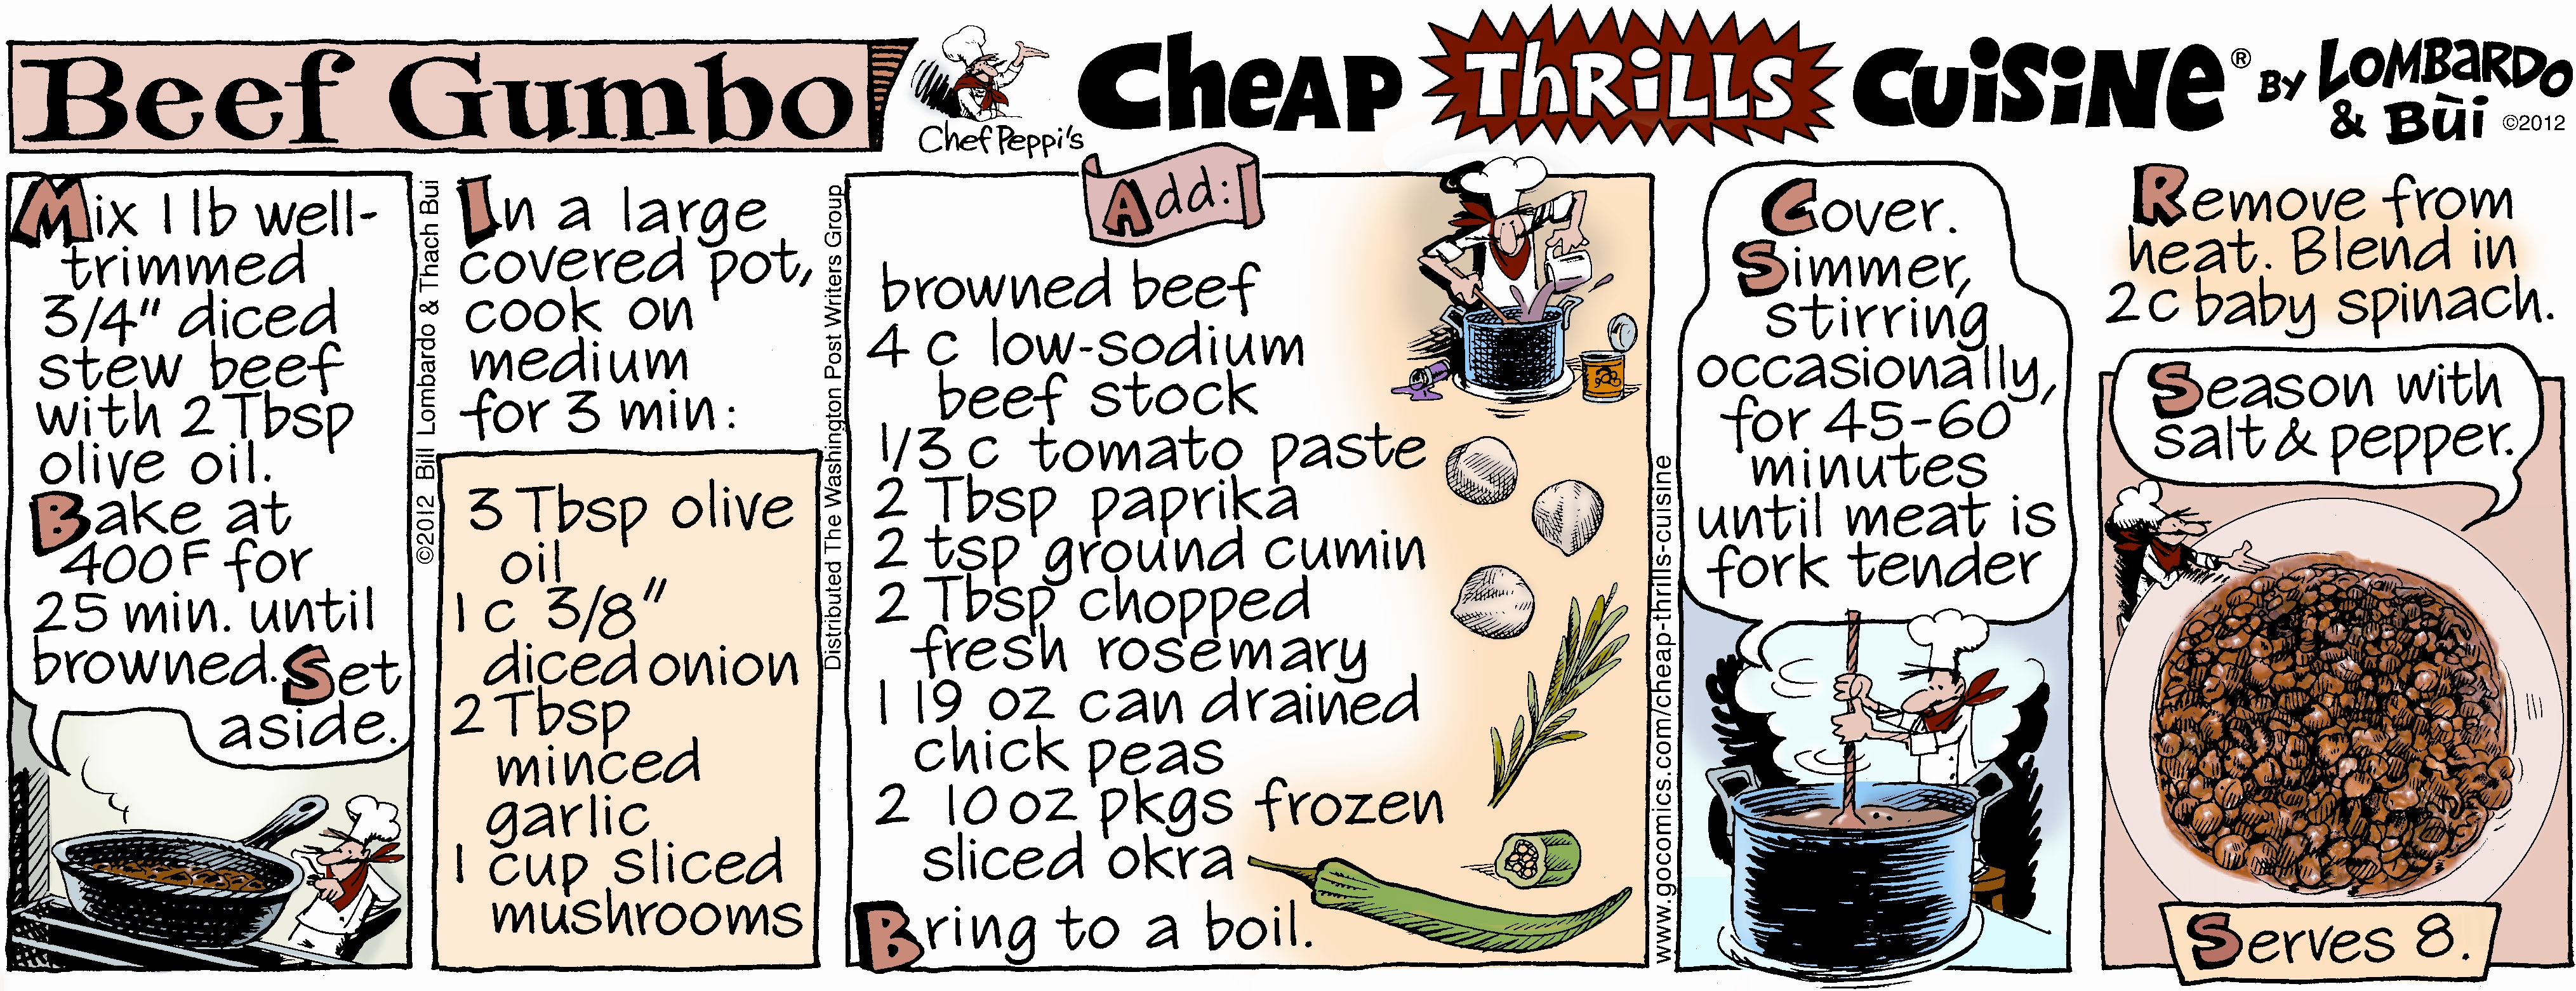 Beef Gumbo
Chef Peppi's
CHEAP THRILLS CUISINE® BY LOMBARDO
& BÙI ©2012
Mix 1 lb well-
trimmed
3/4" diced
stew beef
with 2 Tbsp
olive oil.
Bake at
400F for
25 min. until
browned. Set
aside.
©2012 Bill Lombardo & Thach Bui
In a large
covered pot,
cook on
medium
for 3 min:
3 Tbsp olive
oil
1 c 3/8"
diced onion
2 Tbsp
minced
garlic
1 cup sliced
mushrooms
Distributed The Washington Post Writers Group
Add:
browned beef
4 c low-sodium
beef stock
1/3 c tomato paste
2 Tbsp paprika
2 tsp ground cumin
2 Tbsp chopped
fresh rosemary
1 19 oz can drained
chick peas
2 10 oz pkgs frozen
sliced okra
Bring to a boil.
www.gocomics.com/cheap-thrills-cuisine
Cover.
Simmer,
stirring
occasionally,
for 45-60
minutes
until meat is
fork tender
Remove from
heat. Blend in
2 c baby spinach.
Season with
salt & pepper.
Serves 8.